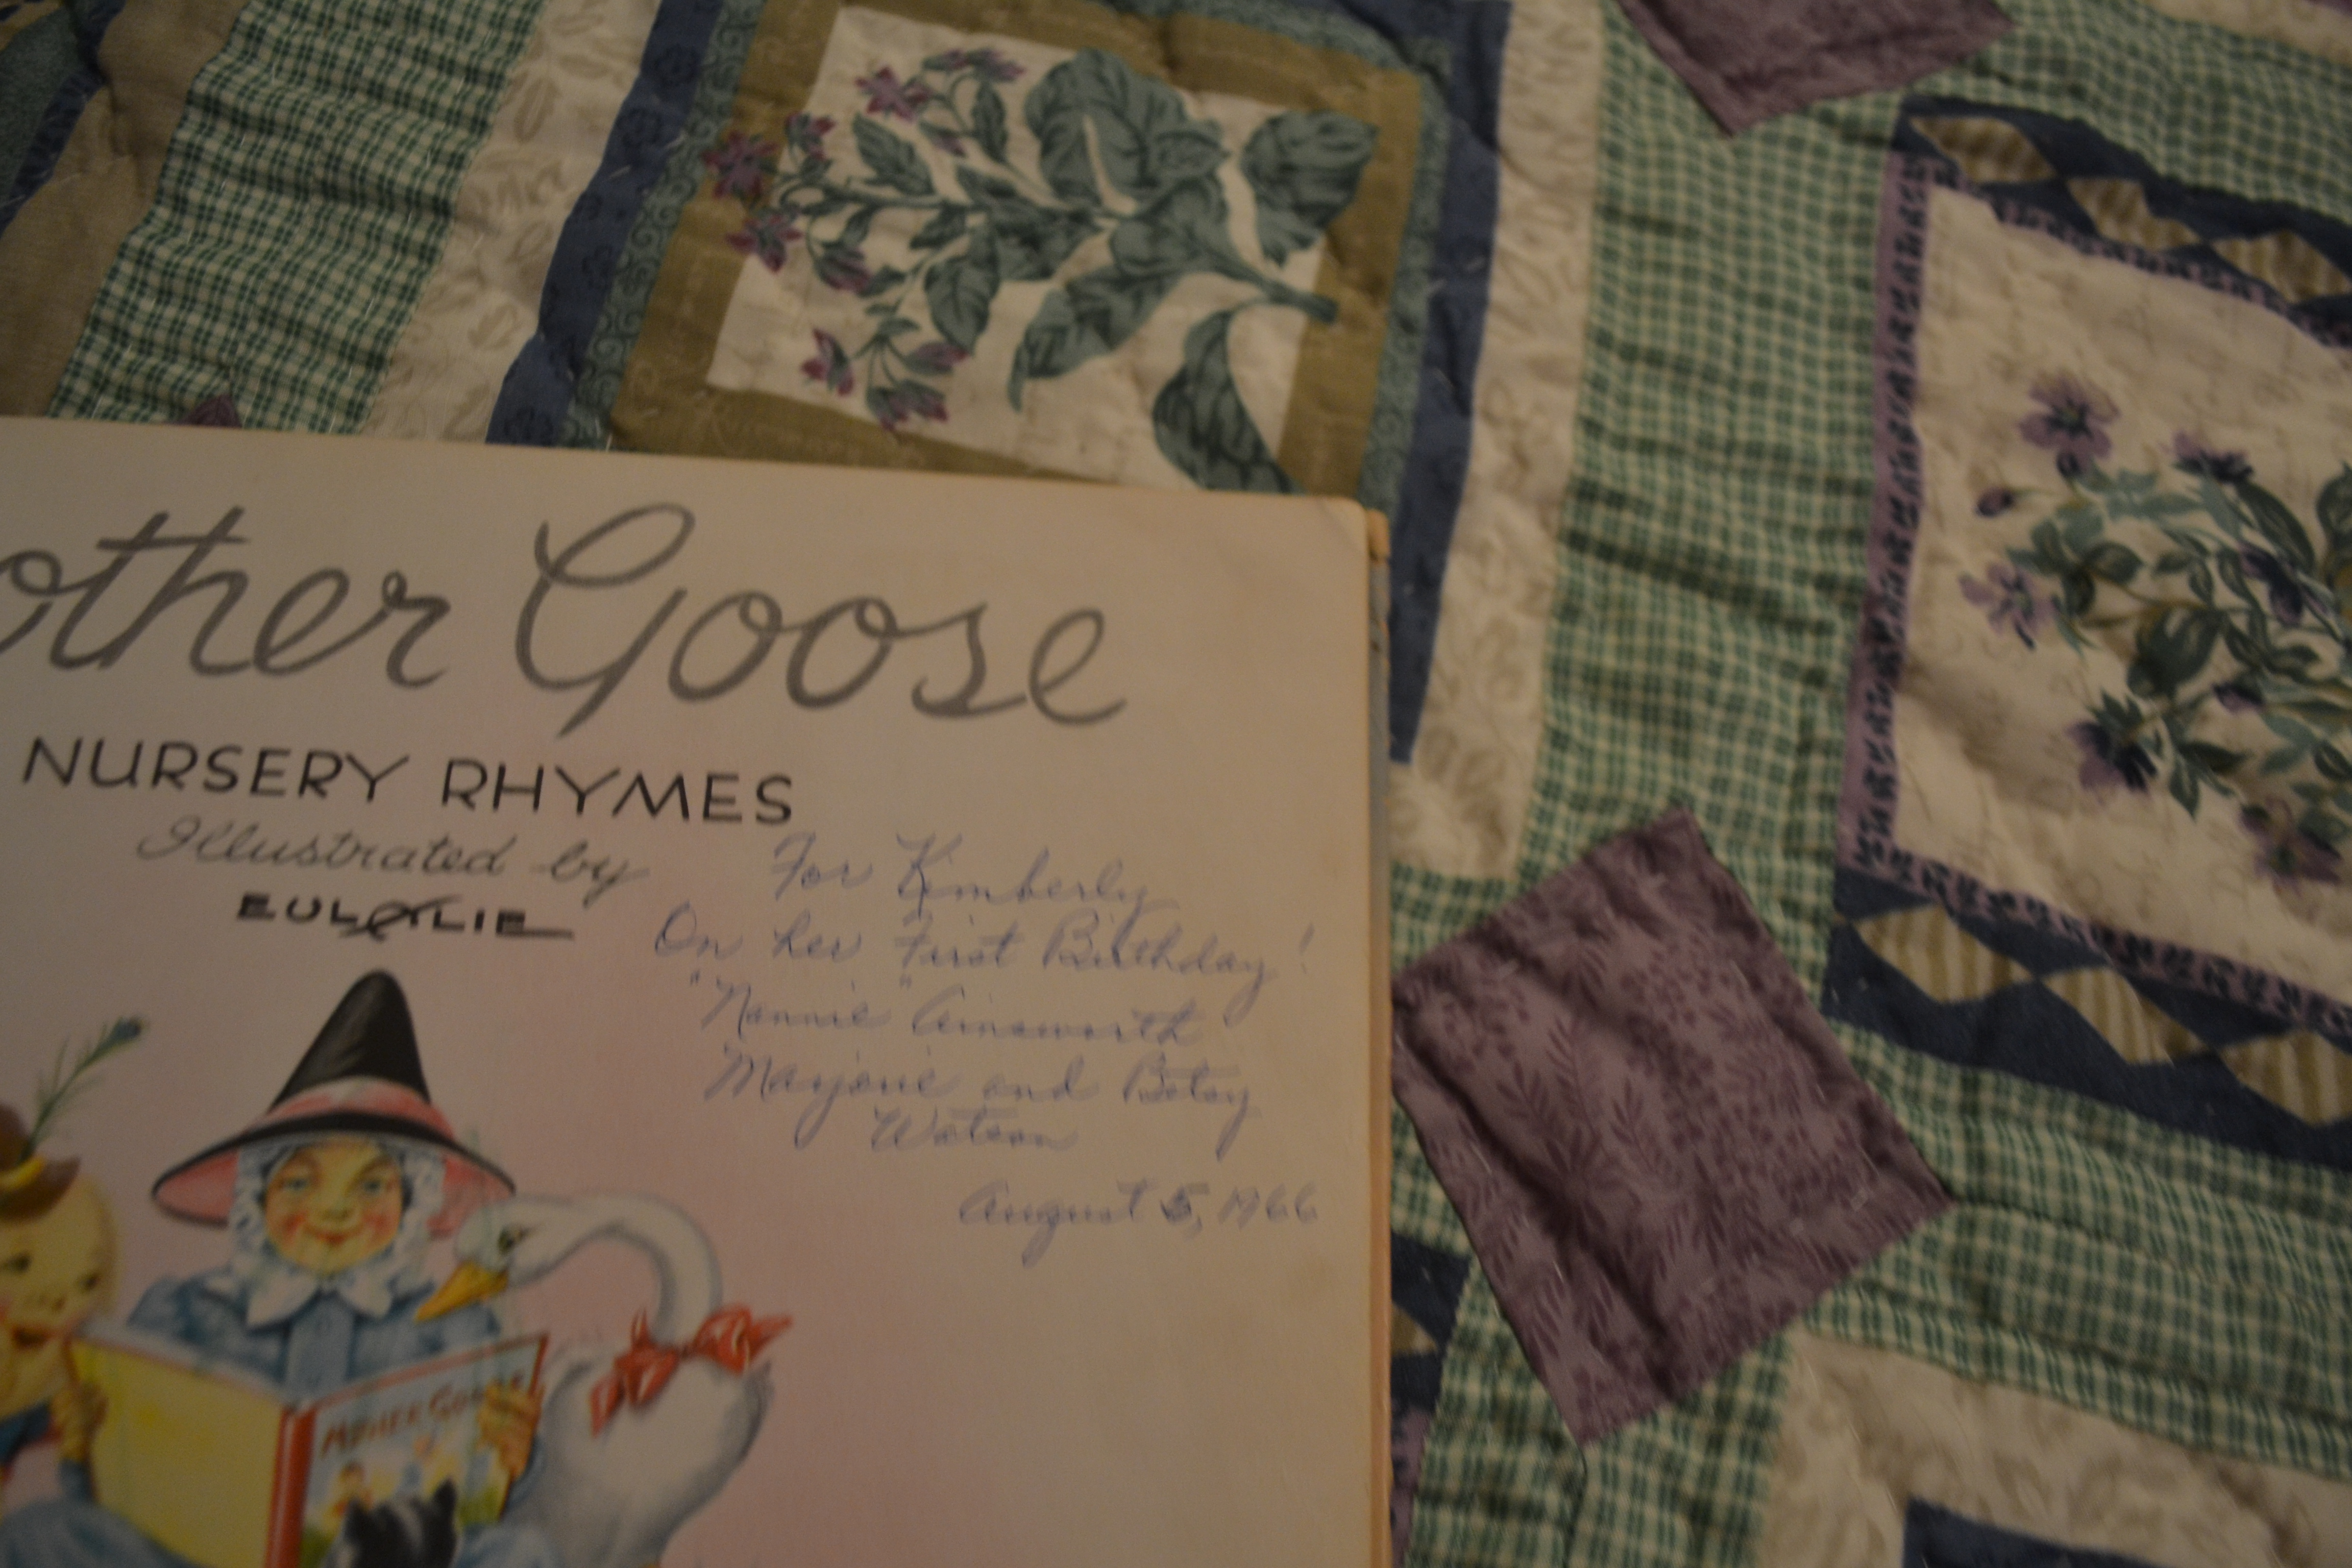 other Goose
NURSERY RHYMES
Illustrated by
EULALIE
For Kimberly
On her First Birthday!
"Nannie" Ainsworth
Marjorie and Betsy
Watson
August 5, 1966
MOTHER GOOSE